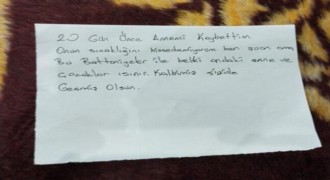 20 Gün Önce Annemi Kaybettim
Onun sıcaklığını hissedemiyorum ben şuan ama
Bu Battaniyeler ile belki ordaki anne ve
Çocuklar ısınır. Kalbimiz sizinle
Geçmiş Olsun.